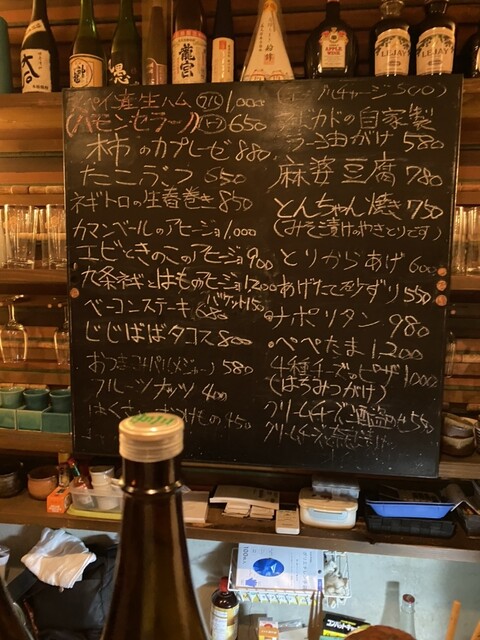 スペイン産生ハム フル 1,000
(ハモンセラーノ) ハーフ 650
柿のカプレーゼ 880
たこブツ 650
ネギトロの生春巻き 850
カマンベールのアヒージョ 1,000
エビときのこのアヒージョ 900
九条ネギとはものアヒージョ 1200
バケット150
ベーコンステーキ 680
じじばばタコス 800
580
フルーツナッツ 400
450
チャージ 500
アボカドの自家製
ラー油がけ 580
麻婆豆腐 780
とんちゃん焼き 750
(みそ漬けのやきとりです)
とりからあげ 600
あげたて砂ずり 550
ナポリタン 980
ペペたま 1,200
4種チーズのピザ 1000
(はちみつがけ)
クリームチーズ
クリームチーズ
龍宮